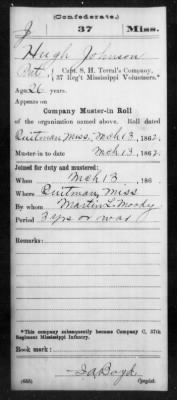 (Confederate.)
J 37 Miss.
Hugh Johnson
Pvt., Capt. S. H. Terral's Company,
37 Reg't Mississippi Volunteers.*
Age 26 years.
Appears on
Company Muster-in Roll
of the organization named above. Roll dated
Quitman, Miss., Mch 13, 1862.
Muster-in to date Mch 13, 1862.
Joined for duty and mustered:
When Mch 13, 186
Where Quitman, Miss
By whom Martin L. Moody
Period 3 yrs or war
Remarks:
*This company subsequently became Company C, 37th
Regiment Mississippi Infantry.
Book mark:
Boyd
(655) Copyist.